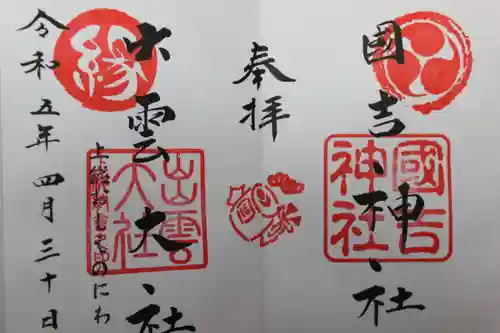 國吉神社
奉拝
國吉神社
出雲大社
縁
出雲大社
上総
のにわ
令和五年四月三十日